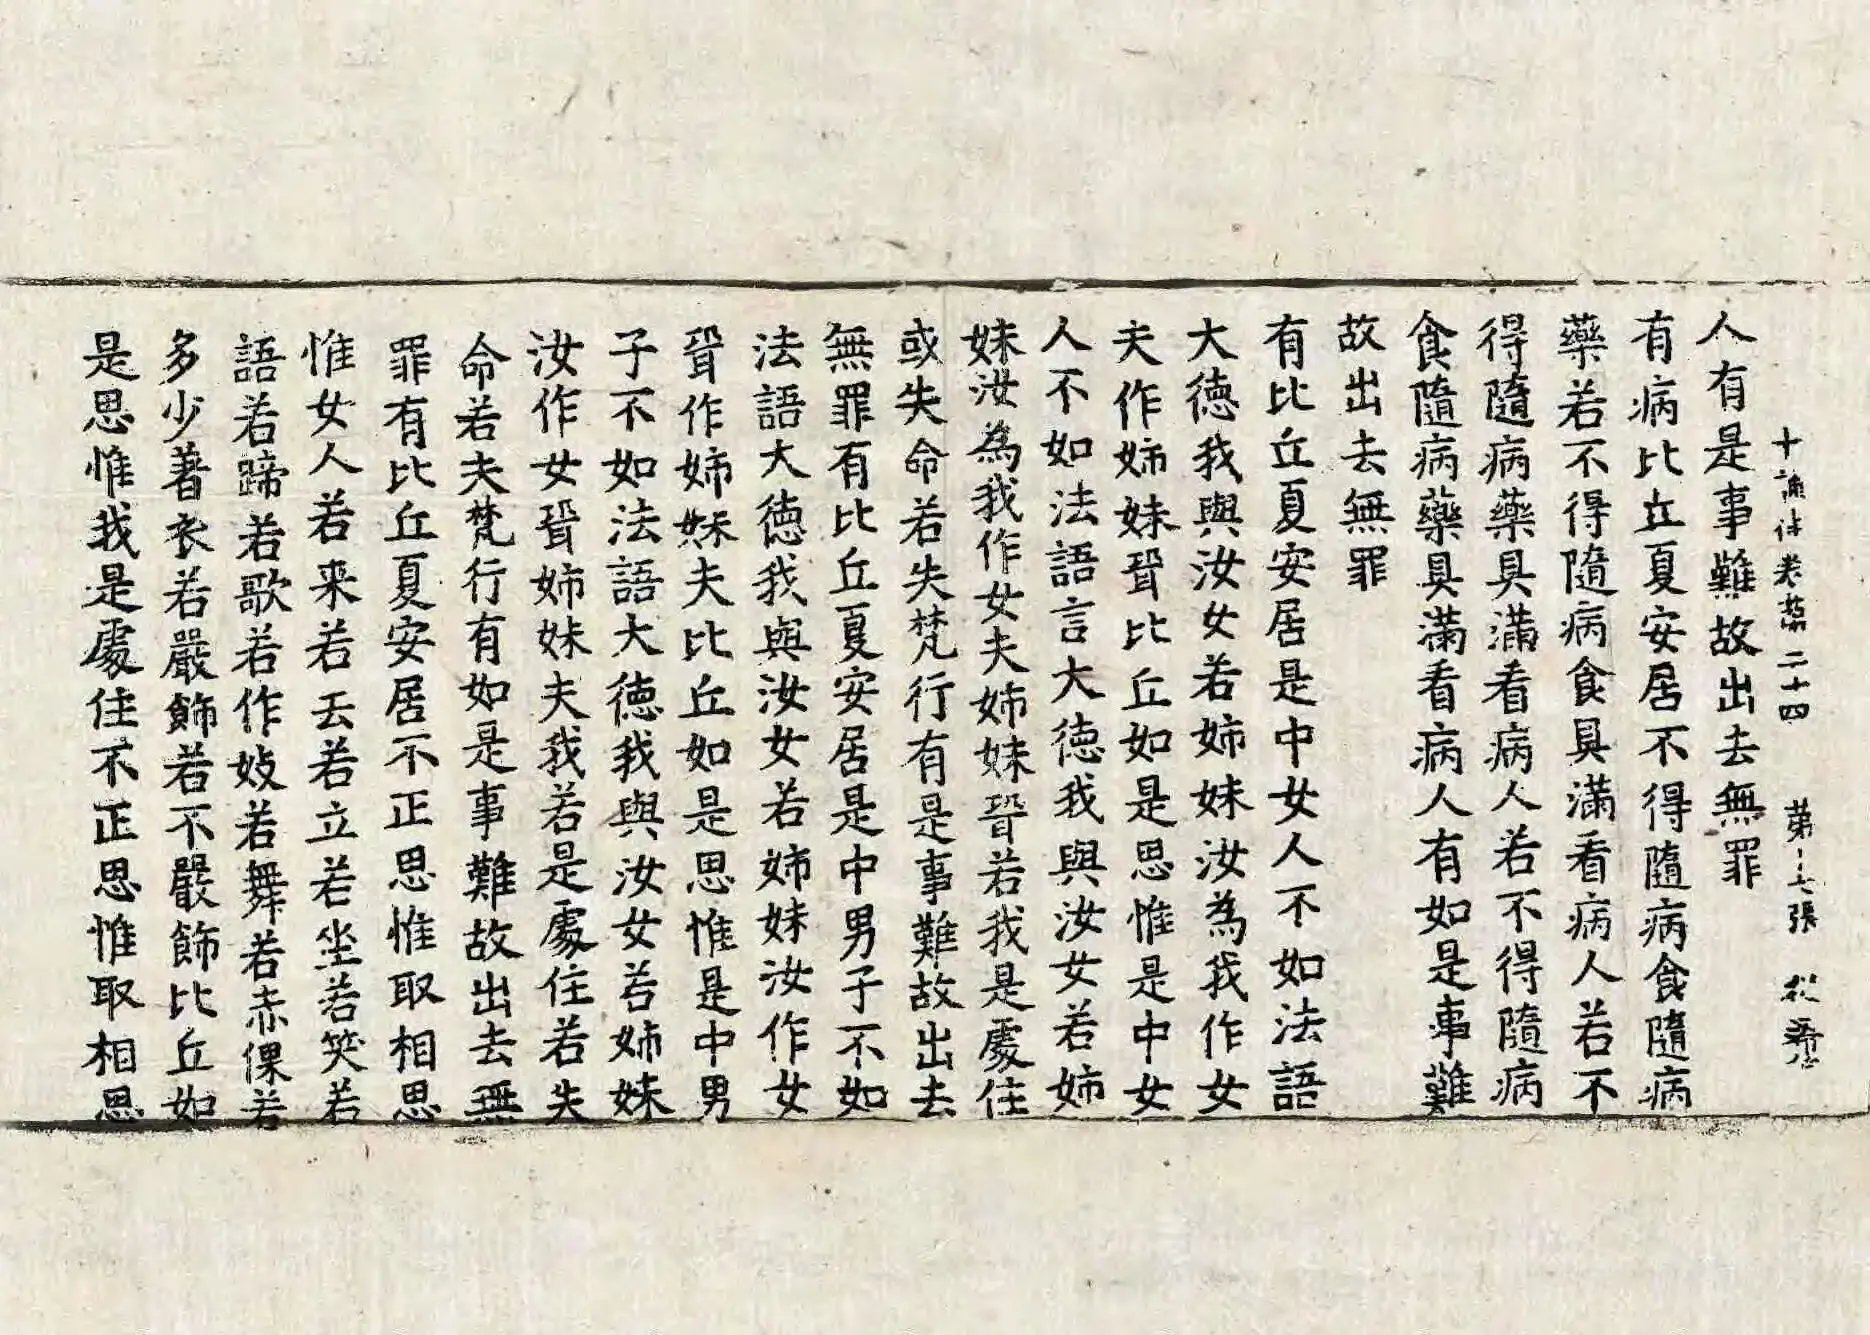 十誦律卷第二十四 第十七張 投
人有是事難故出去無罪
有病比丘夏安居不得隨病食隨病
藥若不得隨病食具滿看病人若不
得隨病藥具滿看病人若不得隨病
食隨病藥具滿看病人有如是事難
故出去無罪
有比丘夏安居是中女人不如法語
大德我與汝女若姉妹汝為我作女
夫作姉妹聟比丘如是思惟是中女
人不如法語言大德我與汝女若姉
妹汝為我作女夫姉妹聟若我是處住
或失命若失梵行有是事難故出去
無罪有比丘夏安居是中男子不如
法語大德我與汝女若姉妹汝作女
聟作姉妹夫比丘如是思惟是中男
子不如法語大德我與汝女若姉妹
汝作女聟姉妹夫我若是處住若失
命若夫梵行有如是事難故出去無
罪有比丘夏安居不正思惟取相思
惟女人若来若去若立若坐若笑若
語若啼若歌若作妓若舞若赤倮若
多少著衣若嚴飾若不嚴飾比丘如
是思惟我是處住不正思惟取相思